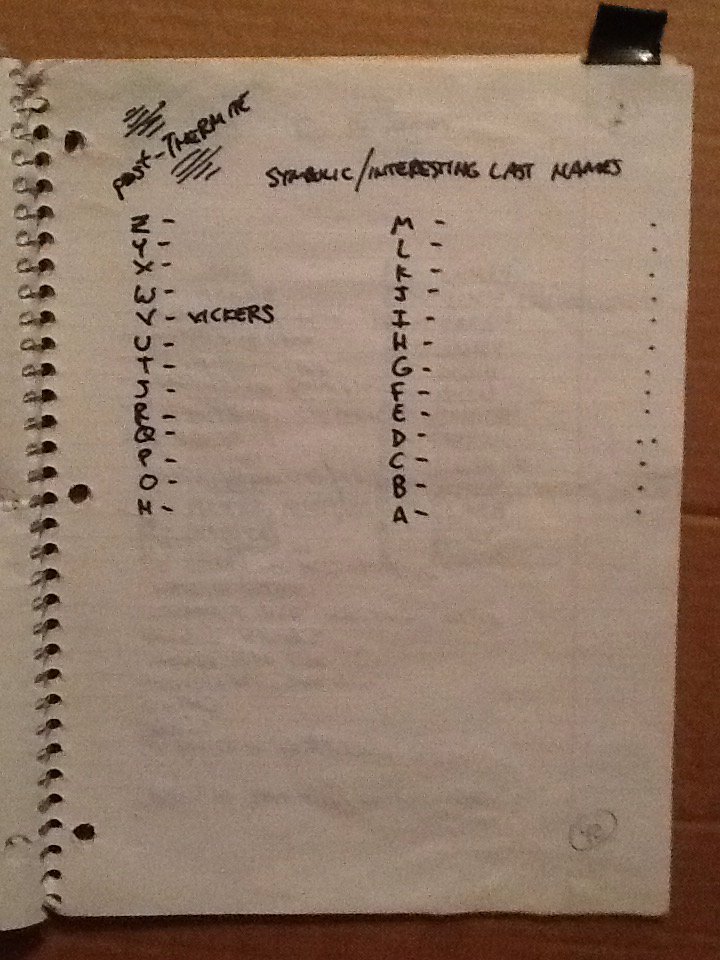 POST-THERMITE
SYMBOLIC/INTERESTING LAST NAMES
Z -
Y -
X -
W -
V - VICKERS
U -
T -
S -
R -
Q -
P -
O -
N -
M -
L -
K -
J -
I -
H -
G -
F -
E -
D -
C -
B -
A -